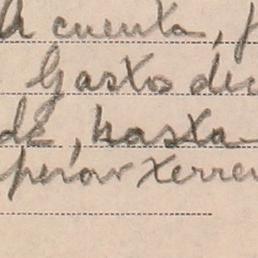 A cuenta, f
Gastos dic
de, hasta
perar xerre